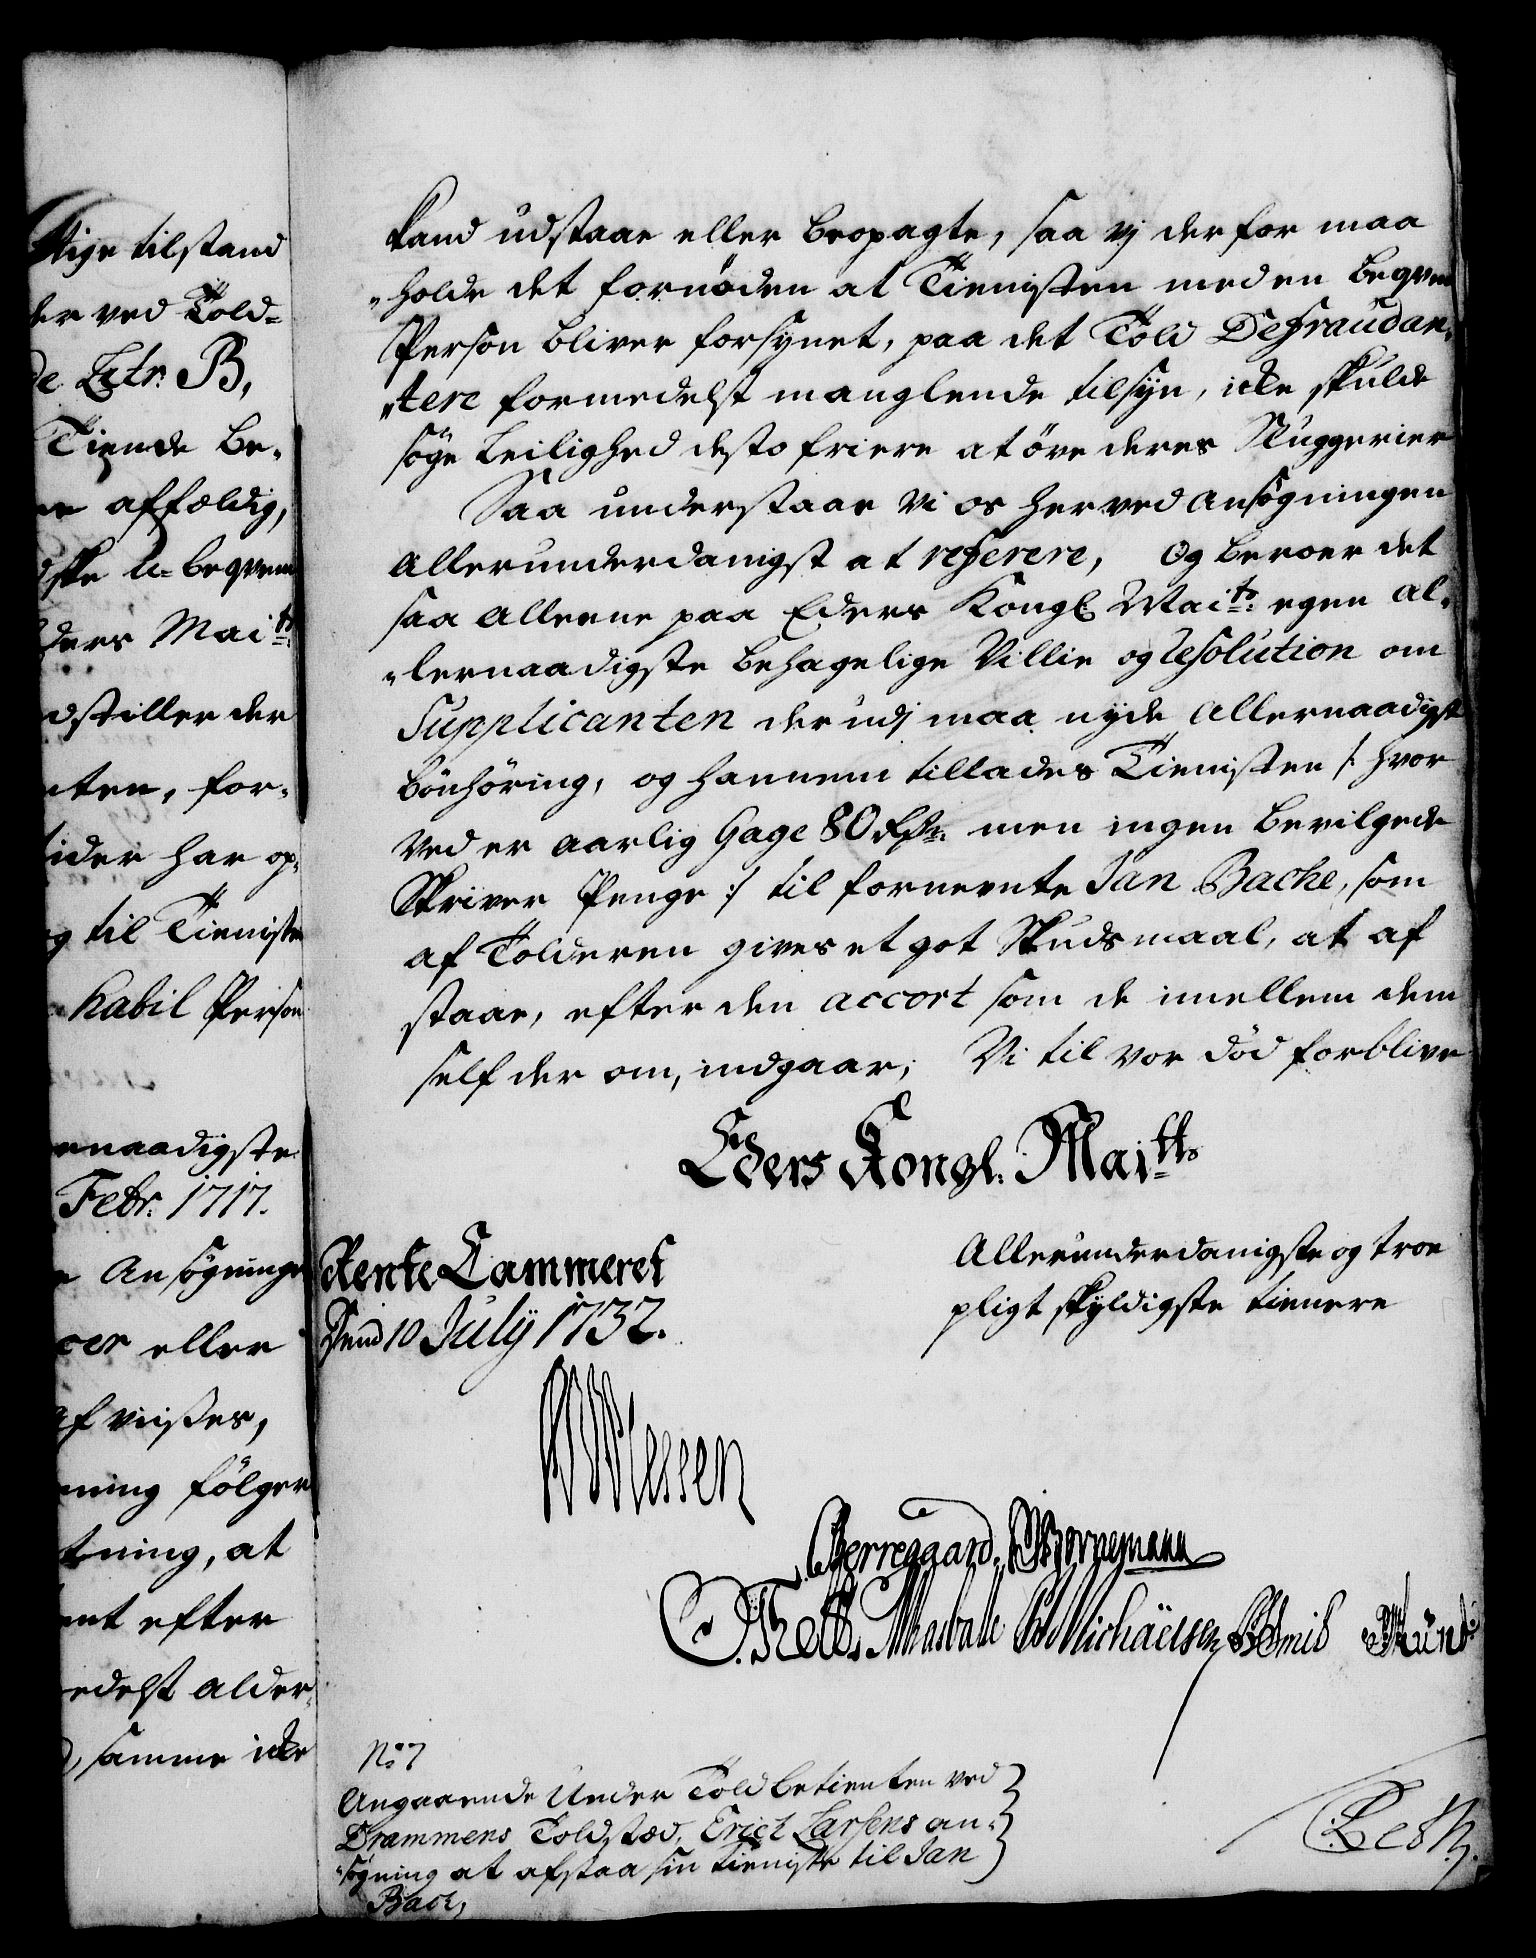 ttige tilstand
der ved Told-
de Litr: B,
Tiende be-
affældig,
u-beqvem
ders Maitt:
dstiller der
nten, for-
tider har op-
g til Tieniste
habil Person
ernaadigste
Febr: 1717.
Ansøgninger
eller
af viises,
ning følger
tning, at
nt efter
edelst alder-
samme icke
kand udstaae eller beopagte, saa vj derfor maa
holde det fornøden at Tienisten med en beqvem
Person bliver forsynet, paa det Told Defraudan-
tere formedelst manglende tilsyn, icke skulde
søge Leilighed desto friere at øve deres Snuggerier
Saa understaar vi os herved ansøgningen
allerunderdanigst at referere, og beroer det
saa alleene paa Eders Kongl: Maitts: egen al-
lernaadigste behagelige Villie og Resolution om
Supplicanten derudj maa nyde allernaadigst
bönhöring, og hannem tillades Tienisten /: hvor
ved er aarlig Gage 80 Rdr: men ingen bevilgede
Skriver Penge :/ til fornevnte Jan Bache, som
af Tolderen gives et got Skudsmaal, at af
staae, efter den accort som de imellem dem
self der om, indgaar; Vi til vor död forblive
Eders Kongl: Maitts
Allerunderdanigste og troe
pligt skyldigste tienere
Rente Cammeret
Dend 10 July 1732.
Plessen
Bierregaard. Bornemann
O. Thott. Michaëlsen Smid Münt
No: 7
Angaaende Under Told betienten ved
Drammens Toldsted, Erich Larsens an-
søgning at afstaa sin tieniste til Jan
Bach,